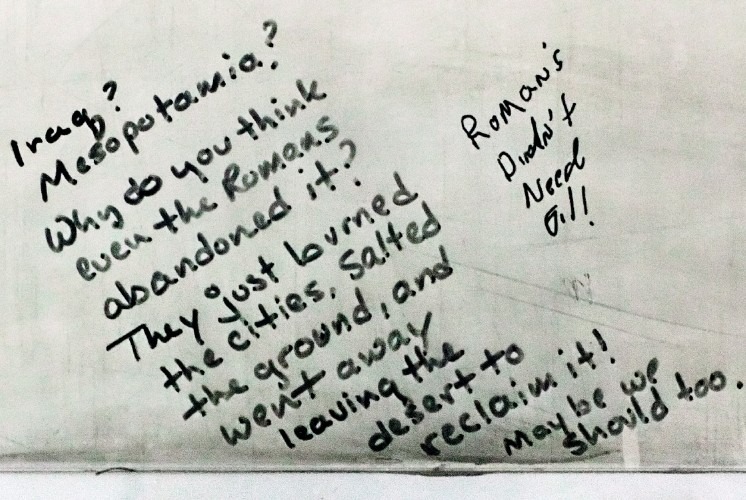 Iraq?
Mesopotamia?
Why do you think
even the Romans
abandoned it?
They just burned
the cities, salted
the ground, and
went away
leaving the
desert to
reclaim it!
maybe we
should too.
Roman's
Didn't
Need
Oil!